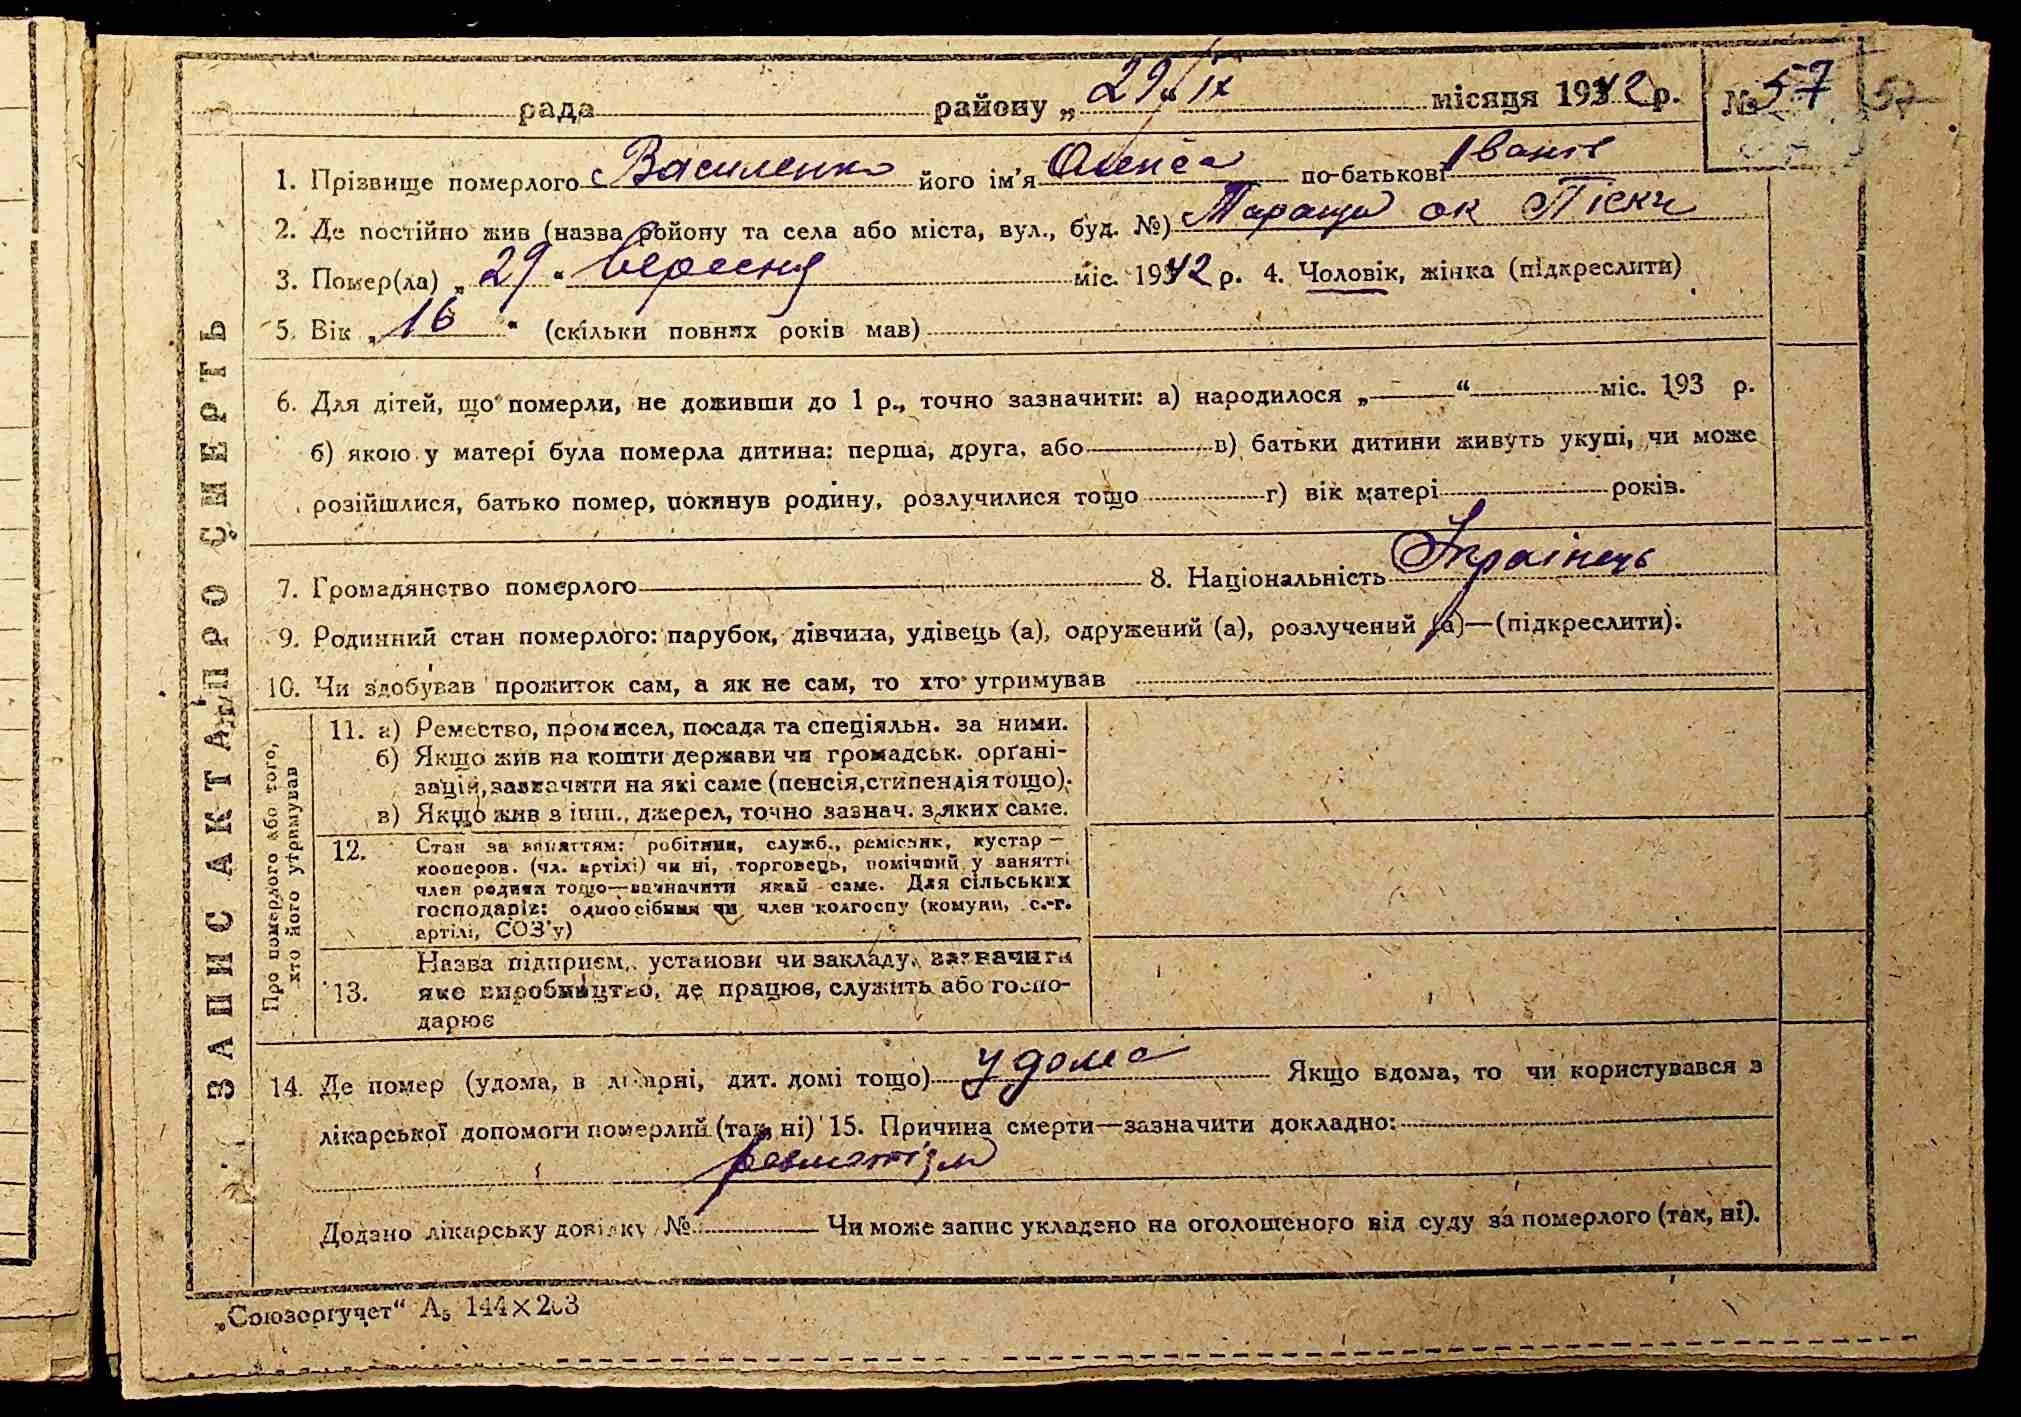 рада району „29“ IX місяця 1942 р. № 57 57
1. Прізвище померлого Василенко його ім'я Олекса по-батькові Іванів
2. Де постійно жив (назва району та села або міста, вул., буд. №) Тараща ок Піски
3. Помер(ла) „29“ вересня міс. 1942 р. 4. Чоловік, жінка (підкреслити)
5. Вік „16“ (скільки повних років мав)
6. Для дітей, що померли, не доживши до 1 р., точно зазначити: а) народилося „ “ міс. 193 р.
б) якою у матері була померла дитина: перша, друга, або в) батьки дитини живуть укупі, чи може
розійшлися, батько помер, покинув родину, розлучилися тощо г) вік матері років.
7. Громадянство померлого 8. Національність Українець
9. Родинний стан померлого: парубок, дівчина, удівець (а), одружений (а), розлучений (а)—(підкреслити).
10. Чи здобував прожиток сам, а як не сам, то хто утримував
ЗАПИС АКТА ПРО СМЕРТЬ
Про померлого або того,
хто його утримував
11. а) Ремество, промисел, посада та спеціяльн. за ними.
б) Якщо жив на кошти держави чи громадськ. органі-
зацій, зазначити на які саме (пенсія, стипендія тощо).
в) Якщо жив з інш., джерел, точно зазнач. з яких саме.
12. Стан за заняттям: робітник, служб., ремісник, кустар —
кооперов. (чл. артілі) чи ні, торговець, помічний у занятті
член родини тощо—зазначити який саме. Для сільських
господарів: одноосібний чи член колгоспу (комуни, с.-г.
артілі, СОЗ'у)
Назва підприєм., установи чи закладу, зазначити
13. яке виробництво, де працює, служить або госпо-
дарює
14. Де помер (удома, в лікарні, дит. домі тощо) у дома Якщо вдома, то чи користувався з
лікарської допомоги померлий (так, ні) 15. Причина смерти—зазначити докладно:
ревматізм
Додано лікарську довідку № Чи може запис укладено на оголошеного від суду за померлого (так, ні).
„Союзоргучет“ А₅ 144×203